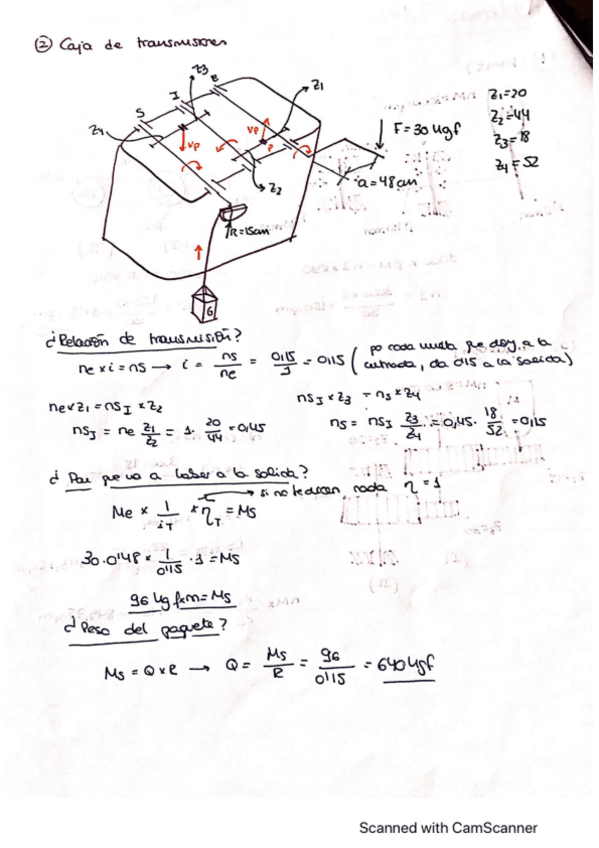 ② Caja de transmisiones
Z3
E
Z1
I
S
Z4
VP
VP
P
Z2
F=30 kgf
a=48cm
R=15cm
G
Z1=20
Z2=44
Z3=18
Z4=52
¿Relación de transmisión?
ne x i = ns → i = ns/ne = 0'15/1 = 0'15 (po cada vuelta que doy a la entrada, da 0'15 a la salida)
ne x Z1 = nsI x Z2
nsI = ne Z1/Z2 = 1 · 20/44 = 0'45
nsI x Z3 = ns x Z4
ns = nsI Z3/Z4 = 0'45 · 18/52 = 0'15
¿Par que va a haber a la salida?
si no te dicen nada η = 1
Me x 1/iT x ηT = Ms
30 · 0'48 x 1/0'15 · 1 = Ms
96 kgf x m = Ms
¿Peso del paquete?
Ms = Q x R → Q = Ms/R = 96/0'15 = 640 kgf
Scanned with CamScanner